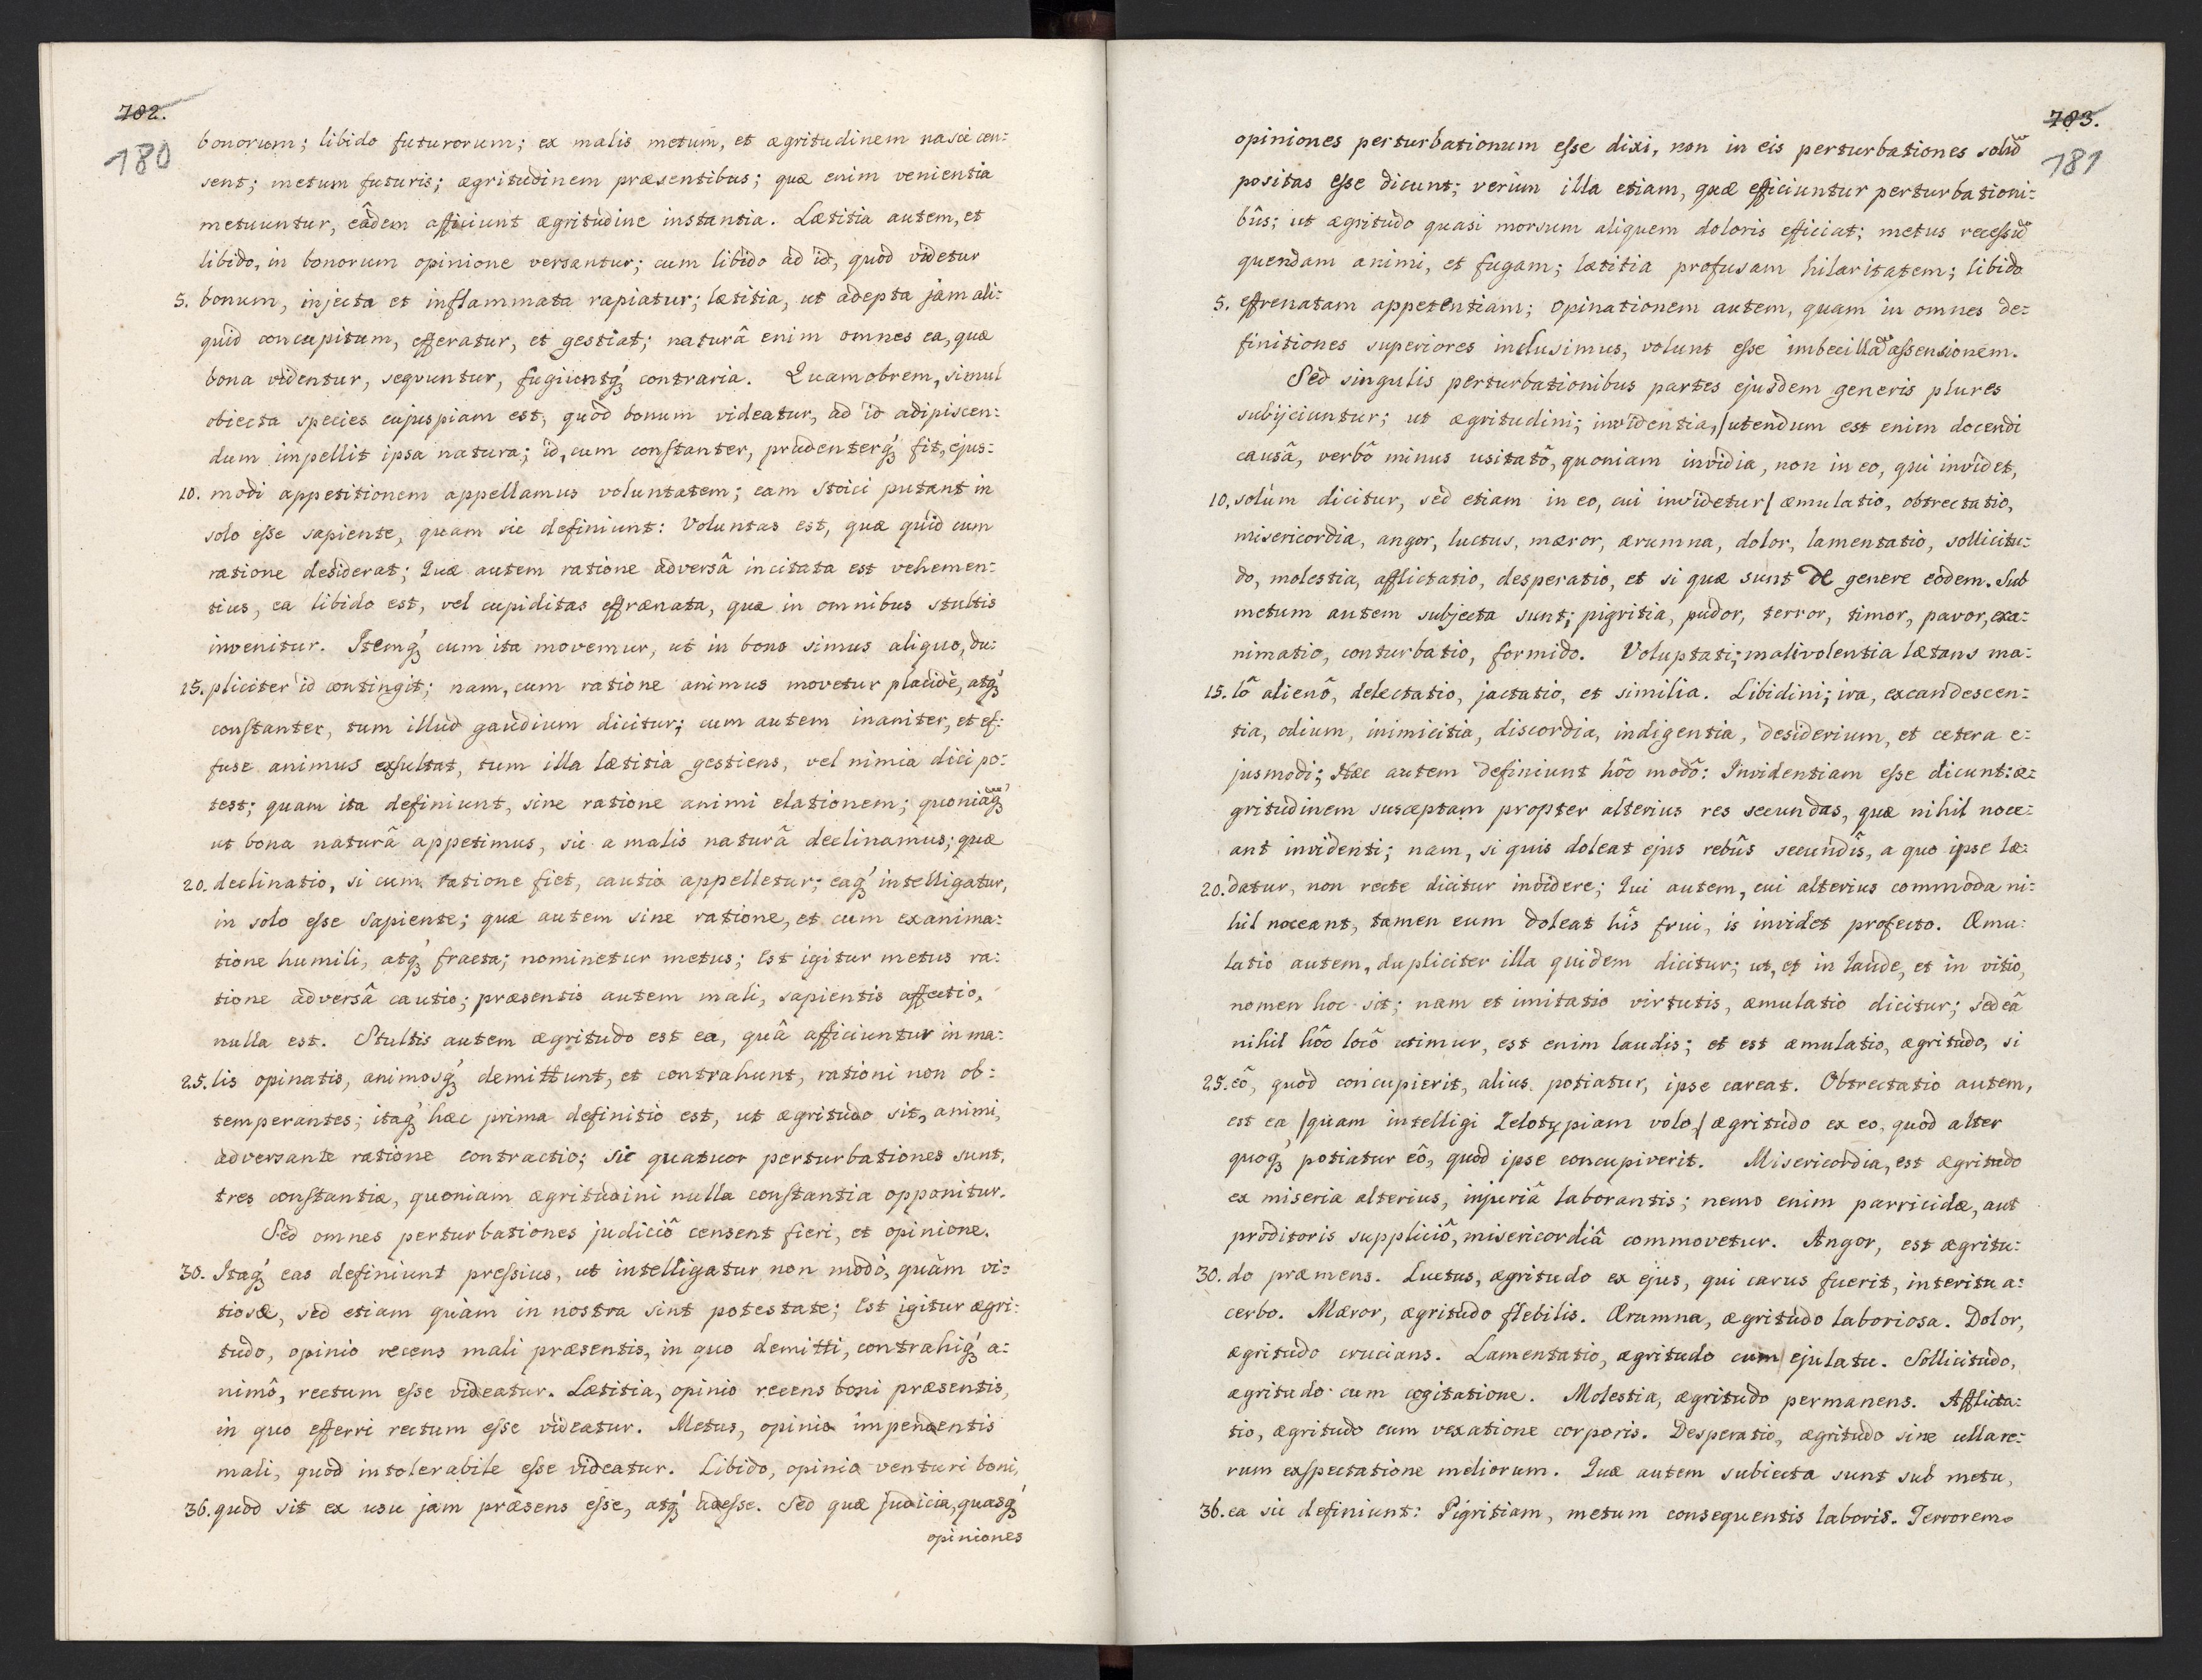 782.
180
bonorum; libido futurorum; ex malis metum, et ægritudinem nasci cen:
sent; metum futuris; ægritudinem præsentibus; quæ enim venientia
metuuntur, eâdem afficiunt ægritudine instantia. Lætitia autem, et
libido, in bonorum opinione versantur; cum libido ad id, quod videtur
5. bonum, injecta et inflammata rapiatur; lætitia, ut adepta jam ali:
quid concupitum, efferatur, et gestiat; naturâ enim omnes ea, quæ
bona videntur, sequuntur, fugiuntq́; contraria. Quamobrem, simul
obiecta species cujuspiam est, quod bonum videatur, ad id adipiscen:
dum impellit ipsa natura; id, cum constanter, prudenterq́; fit, ejus:
10. modi appetitionem appellamus voluntatem; eam Stoici putant in
solo esse sapiente, quam sic definiunt: Voluntas est, quæ quid cum
ratione desiderat; Quæ autem ratione adversâ incitata est vehemen:
tius, ea libido est, vel cupiditas effrænata, quæ in omnibus stultis
invenitur. Itemq́; cum ita movemur, ut in bono simus aliquo, du:
15. pliciter id contingit; nam, cum ratione animus movetur placidè, atq́;
constanter, tum illud gaudium dicitur; cum autem inaniter, et ef:
fuse animus exsultat, tum illa lætitia gestiens, vel nimia dici po:
test; quam ita definiunt, sine ratione animi elationem; quoniaq́;
ut bona naturâ appetimus, sic a malis naturâ declinamus; quæ
20. declinatio, si cum ratione fiet, cautio appelletur; eaq́; intelligatur,
in solo esse sapiente; quæ autem sine ratione, et cum exanima:
tione humili, atq́; fracta; nominetur metus; Est igitur metus ra:
tione adversâ cautio; præsentis autem mali, sapientis affectio,
nulla est. Stultis autem ægritudo est ea, quâ afficiuntur in ma:
25. lis opinatis, animosq́; demittunt, et contrahunt, rationi non ob:
temperantes; itaq́; hæc prima definitio est, ut ægritudo sit, animi,
adversante ratione contractio; sic quatuor perturbationes sunt,
tres constantiæ, quoniam ægritudini nulla constantia opponitur.
Sed omnes perturbationes judiciô censent fieri, et opinione.
30. Itaq́; eas definiunt pressius, ut intelligatur non modò, quàm vi:
tiosæ, sed etiam quàm in nostra sint potestate; Est igitur ægri:
tudo, opinio recens mali præsentis, in quo demitti, contrahiq́; a:
nimô, rectum esse videatur. Lætitia, opinio recens boni præsentis,
in quo efferri rectum esse videatur. Metus, opinio impendentis
mali, quod intolerabile esse videatur. Libido, opinio venturi boni,
36. quod sit ex usu jam præsens esse, atq́; adesse. Sed quæ judicia, quasq́;
opiniones
783.
181
opiniones perturbationum esse dixi, non in eis perturbationes solũ
positas esse dicunt; verùm illa etiam, quæ efficiuntur perturbationi:
bûs; ut ægritudo quasi morsum aliquem doloris efficiat; metus recessũ
quendam animi, et fugam; lætitia profusam hilaritatem; libido
5. effrenatam appetentiam; Opinationem autem, quam in omnes de:
finitiones superiores inclusimus, volunt esse imbecillã assensionem.
Sed singulis perturbationibus partes ejusdem generis plures
subijciuntur; ut ægritudini; invidentia, /utendum est enim docendi
causâ, verbô minus usitatô, quoniam invidia, non in eo, qui invidet,
10. solùm dicitur, sed etiam in eo, cui invidetur/ æmulatio, obtrectatio,
misericordia, angor, luctus, mæror, ærumna, dolor, lamentatio, sollicitu:
do, molestia, afflictatio, desperatio, et si quæ sunt de genere eodem. Sub
metum autem subjecta sunt; pigritia, pudor, terror, timor, pavor, exa:
nimatio, conturbatio, formido. Voluptati; malivolentia lætans ma:
15. lô alienô, delectatio, jactatio, et similia. Libidini; ira, excandescen:
tia, odium, inimicitia, discordia, indigentia, desiderium, et cetera e:
jusmodi; Hæc autem definiunt hôc modô: Invidentiam esse dicunt: æ:
gritudinem susceptam propter alterius res secundas, quæ nihil noce:
ant invidenti; nam, si quis doleat ejus rebûs secundîs, a quo ipse læ:
20. datur, non recte dicitur invidere; Qui autem, cui alterius commoda ni:
hil noceant, tamen eum doleat hîs frui, is invidet profecto. Æmu:
latio autem, dupliciter illa quidem dicitur; ut, et in laude, et in vitio,
nomen hoc sit; nam et imitatio virtutis, æmulatio dicitur; sed eâ
nihil hôc locô utimur, est enim laudis; et est æmulatio, ægritudo, si
25. eô, quod concupierit, alius potiatur, ipse careat. Obtrectatio autem,
est ea, /quam intelligi Zelotypiam volo,/ ægritudo ex eo, quod alter
quoq; potiatur eô, quod ipse concupiverit. Misericordia, est ægritudo
ex miseria alterius, injuriâ laborantis; nemo enim parricidæ, aut
proditoris suppliciô, misericordiâ commovetur. Angor, est ægritu:
30. do præmens. Luctus, ægritudo ex ejus, qui carus fuerit, interitu a:
cerbo. Mæror, ægritudo flebilis. Ærumna, ægritudo laboriosa. Dolor,
ægritudo crucians. Lamentatio, ægritudo cum ejulatu. Sollicitudo,
ægritudo cum cogitatione. Molestia, ægritudo permanens. Afflicta:
tio, ægritudo cum vexatione corporis. Desperatio, ægritudo sine ulla re:
rum exspectatione meliorum. Quæ autem subiecta sunt sub metu,
36. ea sic definiunt: Pigritiam, metum consequentis laboris. Terrorem